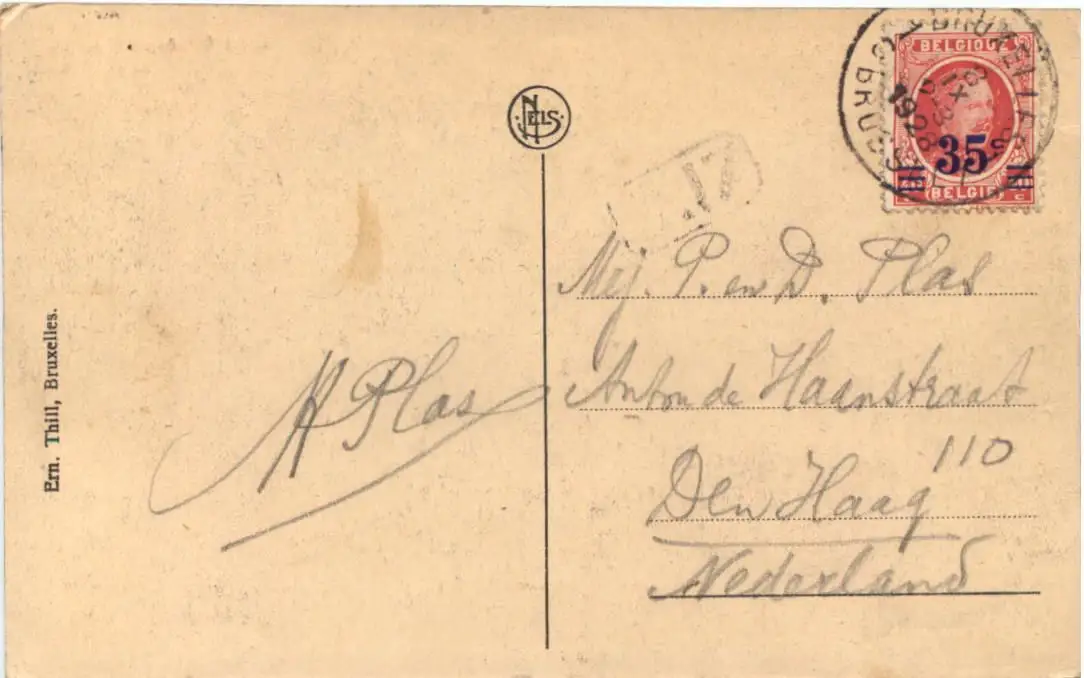 NELS
BELGIQUE
35 c
BELGIË
BRUXELLES
BRUSSEL
1928
Mej. P. en D. Plas
Anton de Haanstraat
110
Den Haag
Nederland
A Plas
Ern. Thill, Bruxelles.